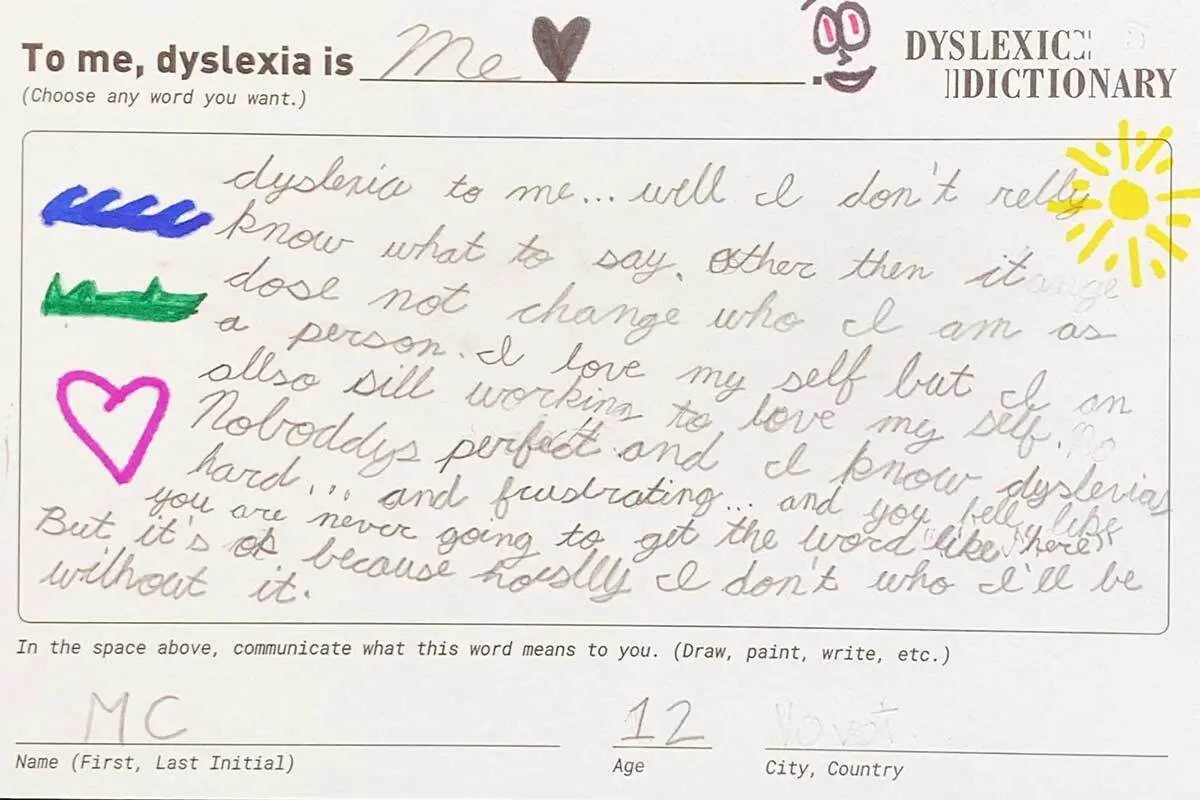 To me, dyslexia is Me
(Choose any word you want.)
DYSLEXIC
DICTIONARY
dyslexia to me... well I don't relly
know what to say. Other then it
dose not change who I am as
a person. I love my self but I an
allso sill working to love my self.
Noboddys perfect and I know dyslexias
hard... and frustrating... and you felly like
you are never going to get the word like "here"
But it's ok because hoestlly I don't who I'll be
without it.
In the space above, communicate what this word means to you. (Draw, paint, write, etc.)
MC
12
Name (First, Last Initial)
Age
City, Country